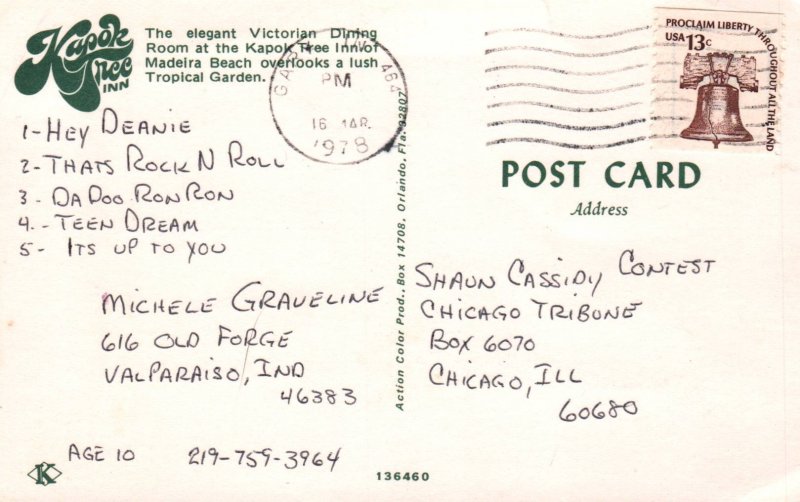 Kapok
Tree
INN
The elegant Victorian Dining
Room at the Kapok Tree Inn of
Madeira Beach overlooks a lush
Tropical Garden.
GARY
464
PM
16 MAR
1978
PROCLAIM LIBERTY THROUGHOUT ALL THE LAND
USA 13c
1- HEY DEANIE
2- THATS ROCK N ROLL
3 - DA DOO RON RON
4. - TEEN DREAM
5 - ITS UP TO YOU
MICHELE GRAVELINE
616 OLD FORGE
VALPARAISO, IND
46383
AGE 10 219-759-3964
K
Action Color Prod., Box 14708, Orlando, Fla. 32807
136460
POST CARD
Address
SHAUN CASSIDY CONTEST
CHICAGO TRIBUNE
BOX 6070
CHICAGO, ILL
60680